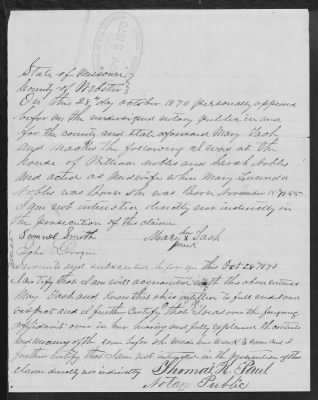 State of Missouri
County of Webster
On this 28th day october 1870 personally appeared
before me the undersigned notary public in and
for the county and state aforesaid Mary Tash
and makes the following I was at the
house of William Nobbs and Sarah Nobbs
and acted as midwife when Mary Lucinda
Nobbs was born She was born November 15 1855
I am not interested directly nor indirectly in
the prosecution of this claim
Samuel Smith Mary X Tash
John mark
Sworn and subscribed before me this Oct 28 1870
I certify that I am well acquainted with this above
Mary Tash and know that she is entitled to full
and I further certify that I read over the foregoing
affidavit over in her hearing and fully explained the contents
and meaning of the same before she made her mark and
further certify that I am not in the prosecution of this
claim directly nor indirectly Thomas K. Paul
Notary Public